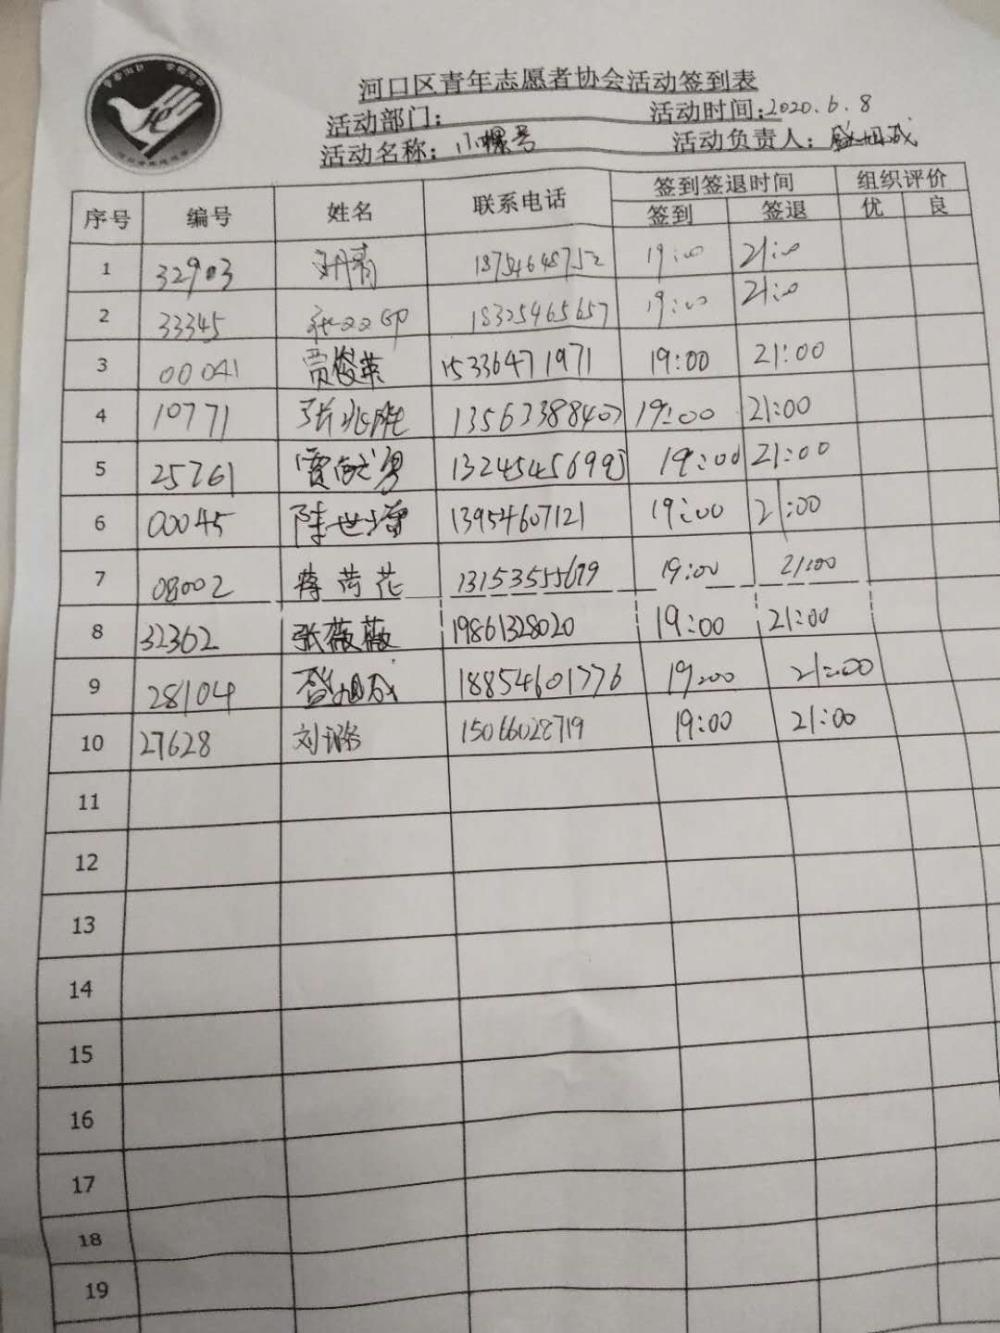 河口区青年志愿者协会活动签到表
活动部门： 活动时间：2020.6.8
活动名称：小螺号 活动负责人：盛旭成
序号 编号 姓名 联系电话 签到签退时间 组织评价
签到 签退 优 良
1 32903 18754648752 19:00 21:00
2 33345 18325465657 19:00 21:00
3 00041 贾俊英 15336471971 19:00 21:00
4 10771 张兆胜 13563388407 19:00 21:00
5 25761 19:00 21:00
6 00045 陈世增 13954607121 19:00 21:00
7 08002 蒋荷花 13153555679 19:00 21:00
8 32362 张薇薇 19861328020 19:00 21:00
9 28104 盛旭成 18854601776 19:00 21:00
10 27628 刘璐 15066028719 19:00 21:00
11
12
13
14
15
16
17
18
19